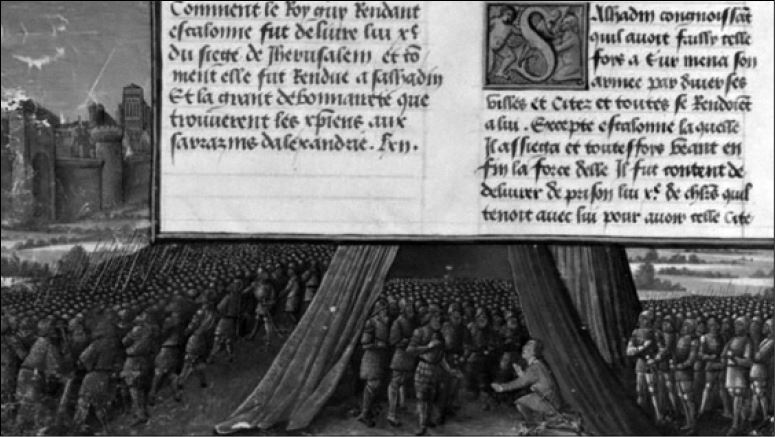 Comment le Roy guy Rendant
escalonne fut deliure lui xᵉ.
du siege de Jherusalem et cõ
ment elle fut Rendue a salhadin
Et la grant debonnairete que
trouuerent les xp̃iens aux
sarrazins dalexandrie.
Salhadin congnoissãt
quil auoit failly celle
fois a Sur mena son
armee par diuerses
villes et Citez et toutes se Rendoiẽt
a lui. Excepte escalonne laquelle
Il assiega et touteffois veant en
fin la force delle Il fut content de
deliurer de prison lui xᵉ. de chlr̃s quil
tenoit auec lui pour auoir celle Cite